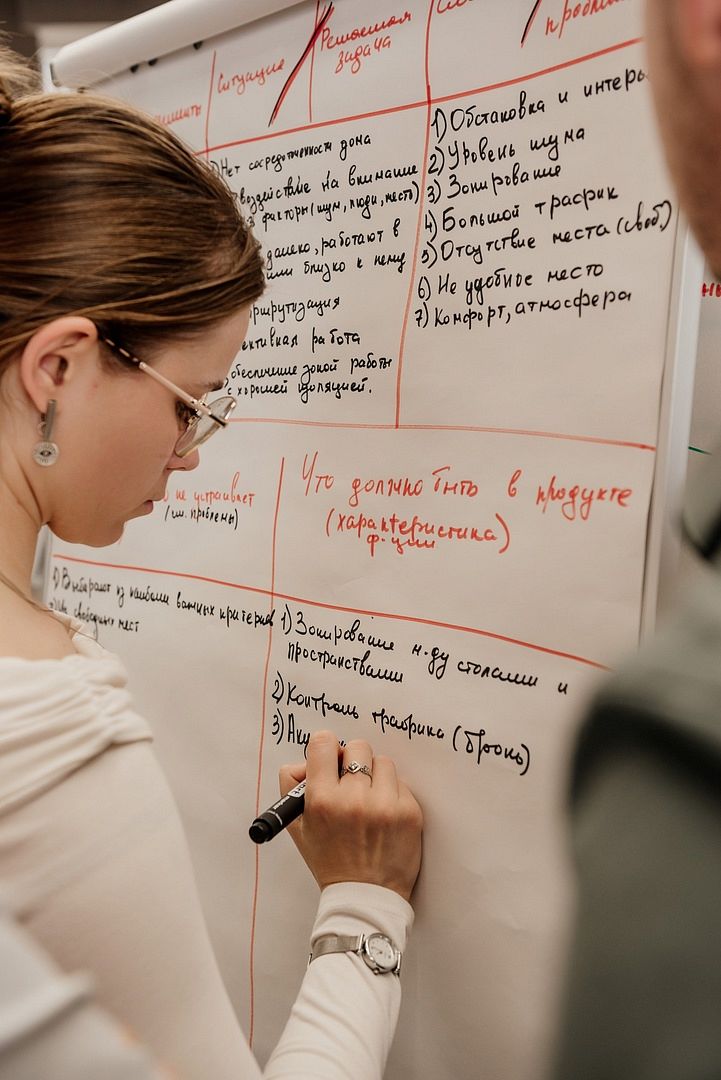 Ситуацию
Решаемая
задача
пробле
Нет сосредоточенности дома
воздействие на внимание
факторы (шум, люди, место)
далеко, работают в
или близко к нему
аршрутизация
ективная работа
обеспечение зоной работы
с хорошей изоляцией.
1) Обстановка и интерь
2) Уровень шума
3) Зонирование
4) Большой трафик
5) Отсутствие места (своб.)
6) Не удобное место
7) Комфорт, атмосфера
не устраивает
(см. проблемы)
Что должно быть в продукте
(характеристика)
ф-ции
1) Выбирают из наиболее важных критериев
свободных мест
1) Зонирование м-ду столами и
пространствами
2) Контроль трафика (бронь)
3) Аку